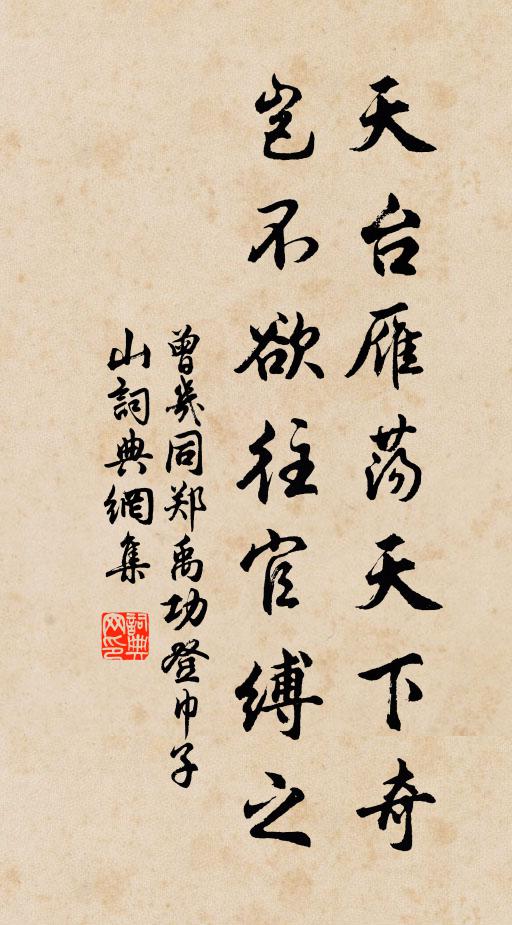 天台雁荡天下奇
岂不欲往官縛之
曾幾同郑禹功登巾子
山詞典網集
詞典网印